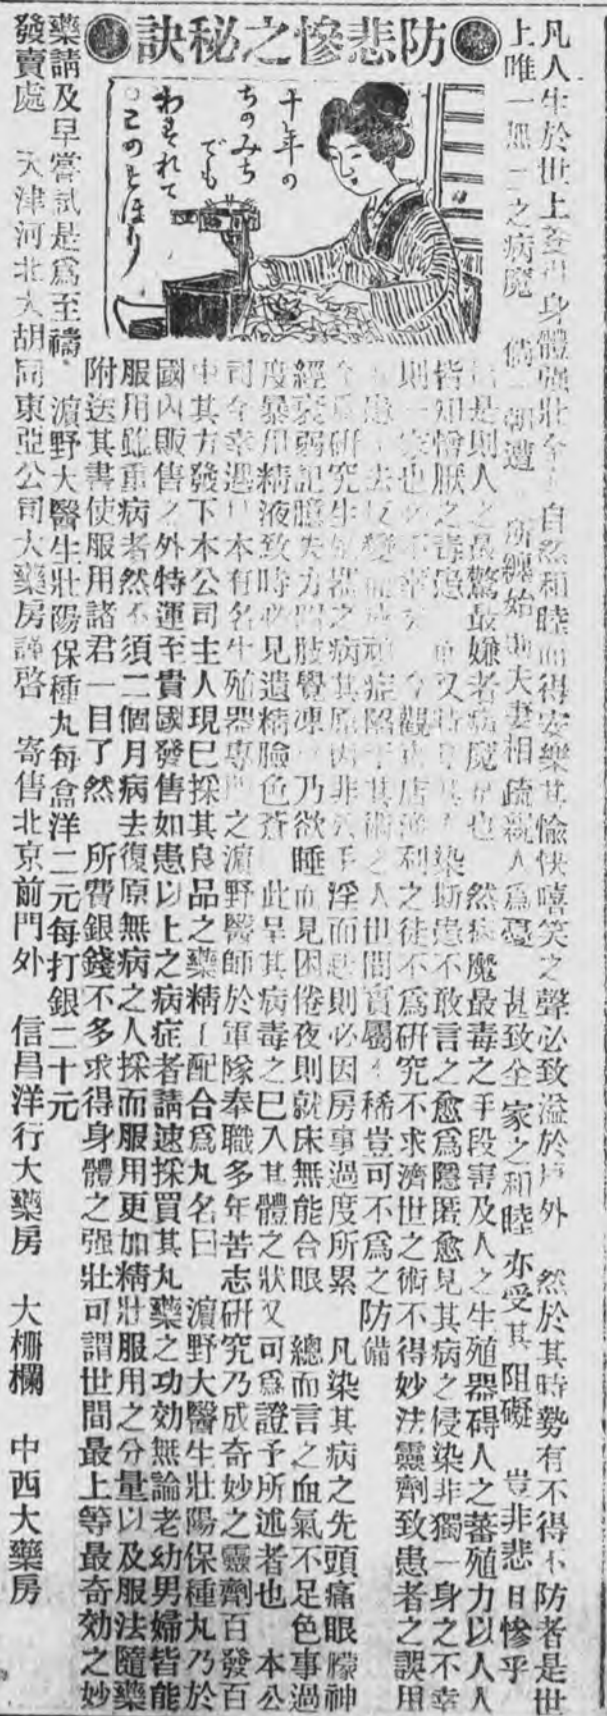 防悲慘之秘訣
十年の
ちのみち
でも
わすれて
このとほり
凡人生於世上 身體强壯 自然和睦而得安樂其愉快嘻笑之聲必致溢於戶外 然於其時勢有不得不防者是世
上唯一無二之病魔 倘一朝遭 所纏始則夫妻相疏親人爲憂 甚致全家之和睦亦受其阻礙 豈非悲日慘乎
是則人之最驚最嫌者病魔 也 然病魔最毒之手段害及人之生殖器碍人之蕃殖力以人人
皆知憎厭之毒患 染斯患不敢言之愈爲隱匿愈見其病之侵染非獨一身之不幸
則 也 觀 店 利之徒不爲研究不求濟世之術不得妙法靈劑致患者之誤用
患 去反變而 頑症陷于其術之人世間實屬不稀豈可不爲之防備
研究生殖器之病其原因非 浮而 則必因房事過度所累 凡染其病之先頭痛眼朦神
經衰弱記臆失力四肢覺凍 乃欲睡而見困倦夜則就床無能合眼 總而言之血氣不足色事過
度暴用精液致時必見遺精臉色蒼 此呈其病毒之已入其體之狀又可爲證予所述者也 本公
司今幸遇日本有名生殖器專門之濵野醫師於軍隊奉職多年苦志研究乃成奇妙之靈劑百發百
中其方發下本公司主人現已採其良品之藥精 配合爲丸名曰 濵野大醫生壯陽保種丸乃於
國內販售之外特運至貴國發售如患以上之病症者請速採買其丸藥之功効無論老幼男婦皆能
服用雖重病者然不須二個月病去復原無病之人採而服用更加精壯服用之分量以及服法隨藥
附送其書使服用諸君一目了然 所費銀錢不多求得身體之强壯可謂世間最上等最奇効之妙
藥請及早嘗試是爲至禱 濵野大醫生壯陽保種丸每盒洋二元每打銀二十元
發賣處 天津河北大胡同東亞公司大藥房謹啓 寄售北京前門外 信昌洋行大藥房 大柵欄 中西大藥房